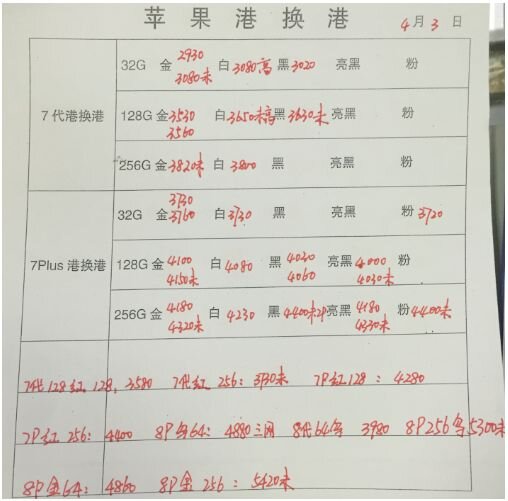 苹果港换港
4月3日
7代港换港
32G 金 2930 3080未 白 3080高 黑 3020 亮黑 粉
128G 金 3530 3560 白 3650未高 黑 3630未 亮黑 粉
256G 金 3820未 白 3800 黑 亮黑 粉
7Plus 港换港
32G 金 3730 3760 白 3730 黑 亮黑 粉 3720
128G 金 4100 4150未 白 4080 黑 4030 4060 亮黑 4000 4030未 粉
256G 金 4180 4320未 白 4230 黑 4400未 亮黑 4180 4330未 粉 4400未
7代128红128, 3580 7代红256: 3730未 7P红128: 4280
7P红256: 4400 8P 64: 4880三网 8代64 3980 8P256 5300未
8P金64: 4860 8P金256: 5420未